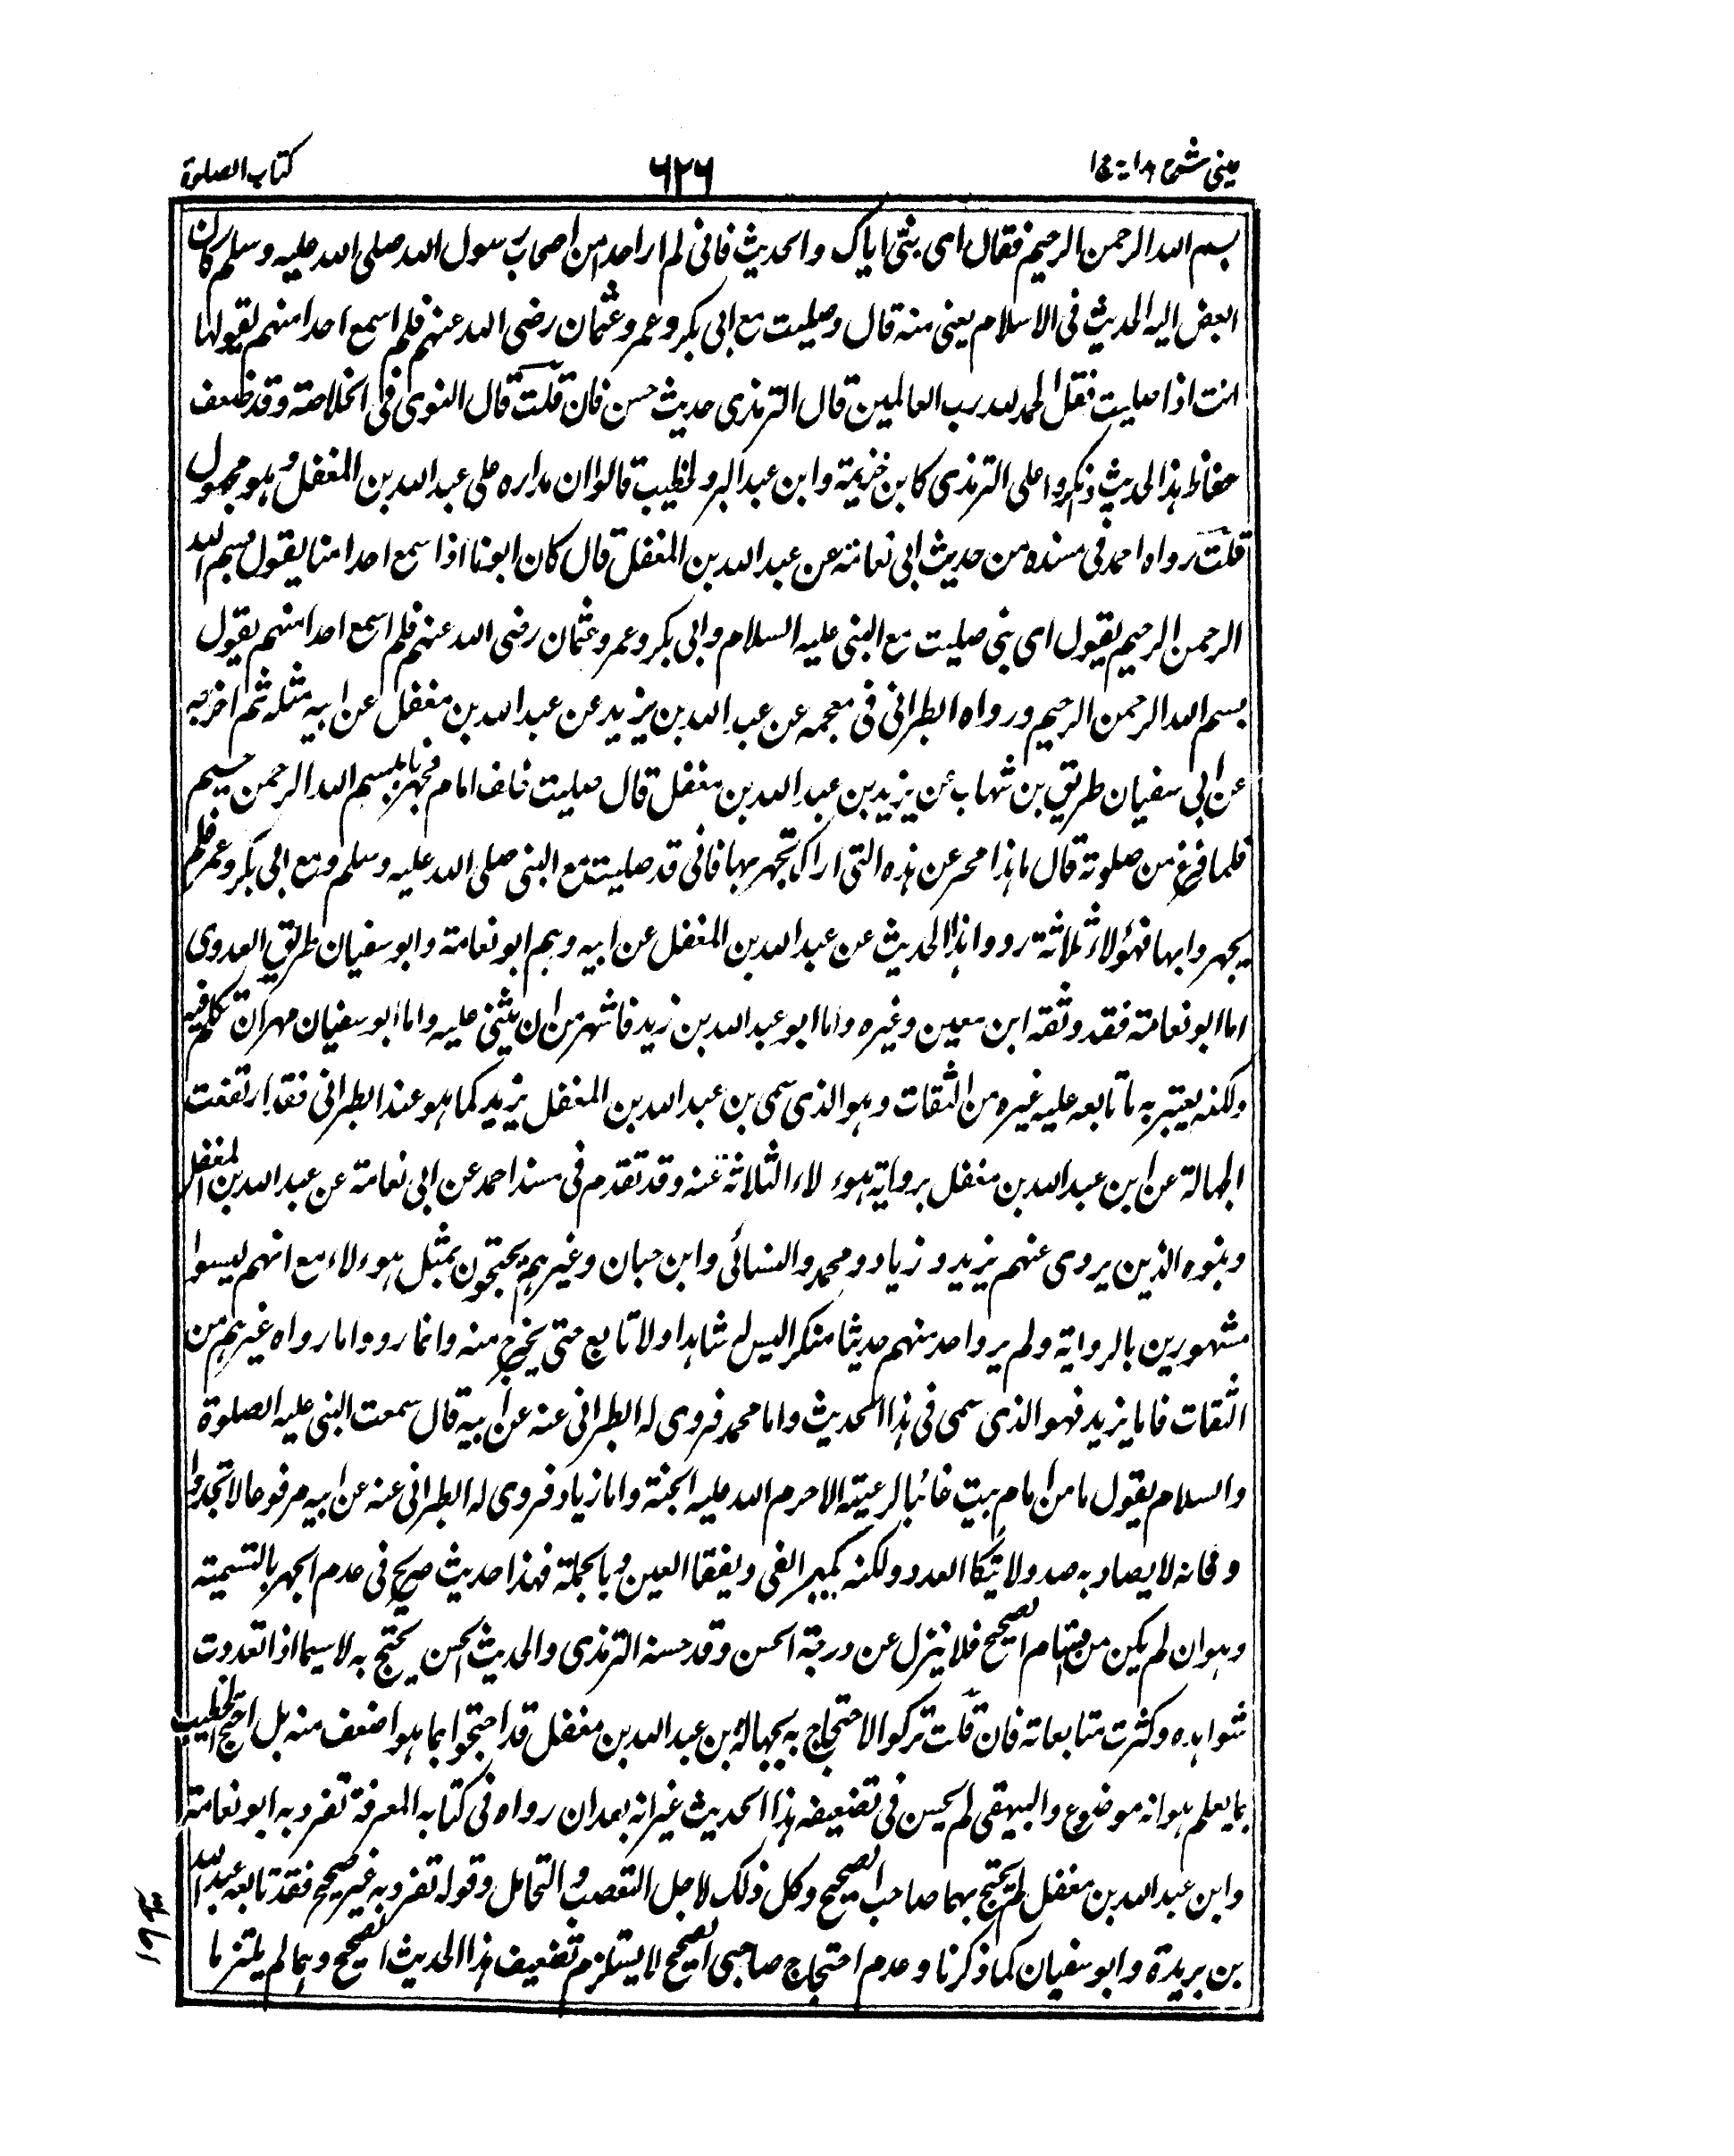 عینی شرح ہدایۃ ج ١
٦٢٦
کتاب الصلوۃ
بسم اللہ الرحمن الرحیم فقال ای بنی ایاک والحدیث فانی لم ار احدا من اصحاب رسول اللہ صلی اللہ علیہ وسلم کان
ابغض الیہ الحدیث فی الاسلام یعنی منہ قال وصلیت مع ابی بکر وعمر وعثمان رضی اللہ عنہم فلم اسمع احدا منہم یقولہا
انت اذا صلیت فقل الحمد للہ رب العالمین قال الترمذی حدیث حسن فان قلت قال النووی فی الخلاصۃ وقد ضعف
حفاظ ہذا الحدیث وانکروا علی الترمذی کابن خزیمۃ وابن عبد البر والخطیب قالوا ان مدارہ علی عبد اللہ بن المغفل وہو مجہول
قلت رواہ احمد فی مسندہ من حدیث ابی نعامۃ عن عبد اللہ بن المغفل قال کان ابونا اذا سمع احدا منا یقول بسم اللہ
الرحمن الرحیم یقول ای بنی صلیت مع النبی علیہ السلام وابی بکر وعمر وعثمان رضی اللہ عنہم فلم اسمع احدا منہم یقول
بسم اللہ الرحمن الرحیم ورواہ الطبرانی فی معجمہ عن عبد اللہ بن یزید عن عبد اللہ بن مغفل عن ابیہ مثلہ ثم اخرجہ
عن ابی سفیان طریق بن شہاب عن یزید بن عبد اللہ بن مغفل قال صلیت خلف امام فجہر بسم اللہ الرحمن الرحیم
فلما فرغ من صلوتہ قال ما ہذا عن ہذہ التی اراک تجہر بہا فانی قد صلیت مع النبی صلی اللہ علیہ وسلم ومع ابی بکر وعمر فلم
یجہروا بہا فہؤلاء ثلاثۃ رووا ہذا الحدیث عن عبد اللہ بن المغفل عن ابیہ وہم ابو نعامۃ وابو سفیان طریق العدوی
اما ابو نعامۃ فقد وثقہ ابن معین وغیرہ واما ابو عبد اللہ بن زید فاشہر من ان یثنی علیہ واما ابو سفیان مہران تکلم فیہ
ولکنہ یعتبر بہ ما تابعہ علیہ غیرہ من الثقات وہو الذی سمی بن عبد اللہ بن المغفل یزید کما ہو عند الطبرانی فقد ارتفعت
الجہالۃ عن ابن عبد اللہ بن مغفل بروایۃ ہؤلاء الثلاثۃ عنہ وقد تقدم فی مسند احمد عن ابی نعامۃ عن عبد اللہ بن المغفل
وبنوہ الذین یروی عنہم یزید وزیاد ومحمد والنسائی وابن حبان وغیرہم یحتجون بمثل ہؤلاء مع انہم لیسوا
مشہورین بالروایۃ ولم یرو احد منہم حدیثا منکرا لیس لہ شاہدا ولا تابع حتی یخرج منہ وانما رووا ما رواہ غیرہم من
الثقات فاما یزید فہو الذی سمی فی ہذا الحدیث واما محمد فروی لہ الطبرانی عنہ عن ابیہ قال سمعت النبی علیہ الصلوۃ
والسلام یقول ما من امام یبیت غائبا لرعیتہ الا حرم اللہ علیہ الجنۃ واما زیاد فروی لہ الطبرانی عنہ عن ابیہ مرفوعا لا تخذفوا
وفانہ لا یصاد بہ صید ولا ینکا العدو ولکنہ یکسر السن ویفقا العین وبالجملۃ فہذا حدیث صریح فی عدم الجہر بالتسمیۃ
وہو ان لم یکن من اقسام الصحیح فلا ینزل عن درجۃ الحسن وقد حسنہ الترمذی والحدیث الحسن یحتج بہ لا سیما اذا تعددت
شواہدہ وکثرت متابعاتہ فان قلت ترکوا الاحتجاج بہ بجہالۃ بن عبد اللہ بن مغفل قد احتجوا بما ہو اضعف منہ بل احتج الخطیب
بما یعلم ہو انہ موضوع والبیہقی لم یحسن فی تضعیفہ ہذا الحدیث غیر انہ بعد ان رواہ فی کتابہ المعرفۃ تفرد بہ ابو نعامۃ
وابن عبد اللہ بن مغفل لم یحتج بہما صاحب الصحیح وکل ذلک لاجل التعصب والتحامل وقولہ تفرد بہ غیر صحیح فقد تابعہ عبد اللہ
بن بریدۃ وابو سفیان کما ذکرنا وعدم احتجاج صاحبی الصحیح لا یستلزم تضعیف ہذا الحدیث الصحیح وہما لم یلتزما